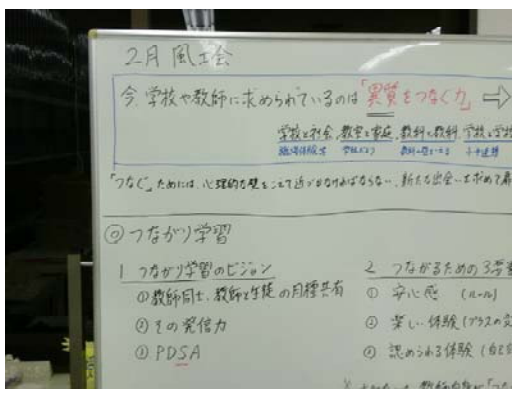 2月 風土会
今、学校や教師に求められているのは「異質をつなぐ力」⇨
学校と社会、教室と家庭、教科と教科、学校と学校
職場体験等
「つなぐ」ためには、心理的な壁をこえて近づかなければならない、新たな出会いを求めて
◎つながり学習
1 つながり学習のビジョン
①教師同士、教師と生徒の目標共有
②その発信力
③PDSA
2 つながるための3
① 安心感 (ルール)
② 楽しい体験 (プラスの
③ 認められる体験